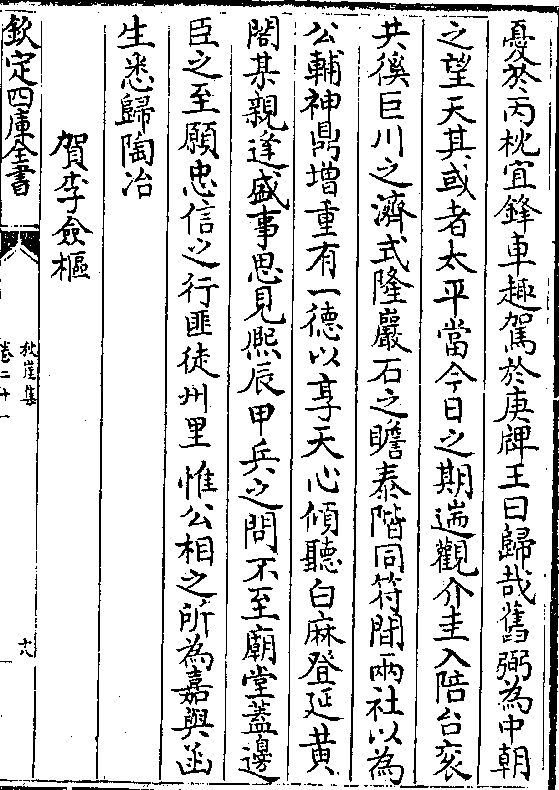 憂於丙枕宜鋒車趣駕於庚牌王曰歸哉舊弼為中朝
之望天其或者太平當今日之期遄觀介圭入陪台衮
共徯巨川之濟式隆巖石之瞻泰階同符間兩社以為
公輔神鼎増重有一德以享天心傾聽白麻登延黄
閤某親逢盛事思見熙辰甲兵之問不至廟堂蓋邊
臣之至願忠信之行匪徒州里惟公相之所為嘉與函
生悉歸陶冶
賀李僉樞
欽定四庫全書
秋崖集
卷二十一
十八